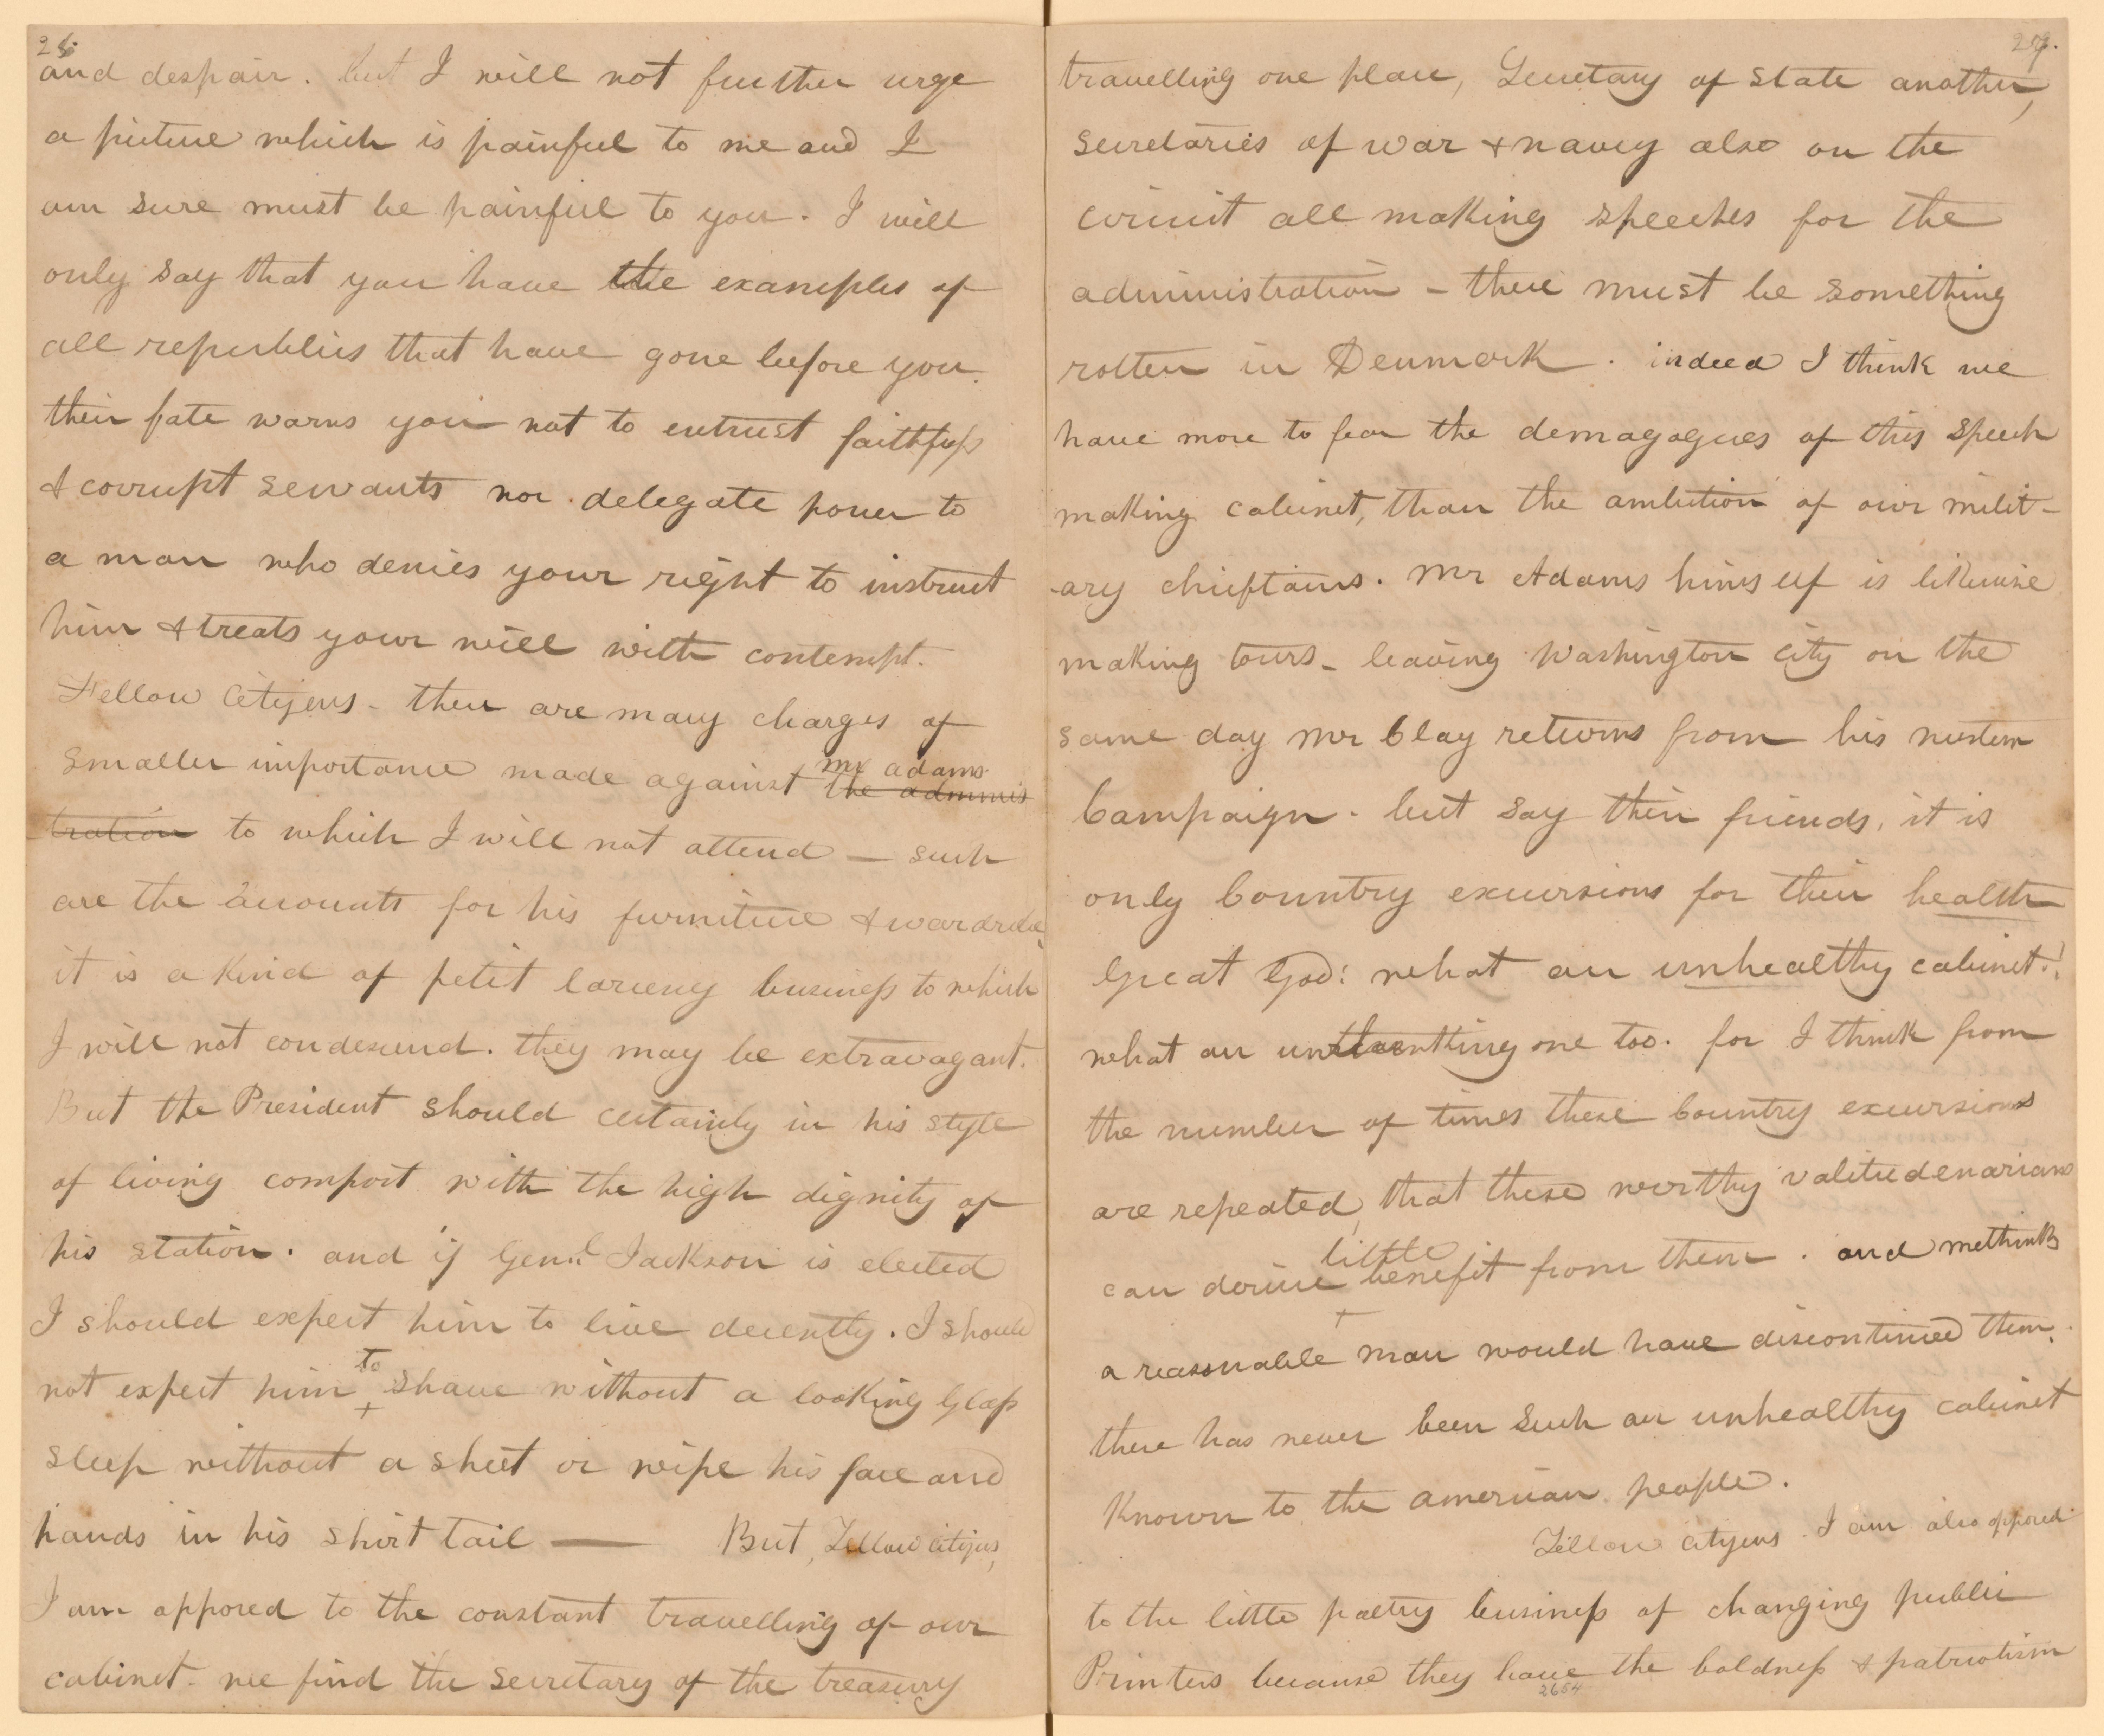 26.
and despair. but I will not further urge
a picture which is painful to me and I
am sure must be painful to you. I will
only say that you have the examples of
all republics that have gone before you.
their fate warns you not to entrust faithless
& corrupt servants nor delegate power to
a man who denies your right to instruct
him & treats your will with contempt.
Fellow Citizens - there are many charges of
smaller importance made against the adminis
mr adams
tration to which I will not attend — such
are the accounts for his furniture & wardrobe,
it is a kind of petit larceny business to which
I will not condescend. they may be extravagant.
But the President should certainly in his style
of living comport with the high dignity of
his station. and if Genl Jackson is elected
I should expect him to live decently. I should
not expect him to shave without a looking Glass
sleep without a sheet or wipe his face and
hands in his shirt tail — But, Fellow citizens,
I am opposed to the constant travelling of our
cabinet. we find the secretary of the treasury
27.
travelling one place, Secretary of State another,
secretaries of war & navy also on the
circuit all making speeches for the
administration - there must be something
rotten in Denmark. indeed I think we
have more to fear the demagogues of this speech
making cabinet, than the ambition of our milit-
-ary chieftains. Mr Adams himself is likewise
making tours - leaving Washington city on the
same day Mr Clay returns from his western
Campaign. but say their friends, it is
only Country excursions for their health
Great God! what an unhealthy cabinet!
what an unthinking one too. for I think from
the number of times these Country excursions
are repeated, that these worthy valitudenarians
can derive little benefit from them. and methinks
a reasonable man would have discontinued them.
there has never been such an unhealthy cabinet
known to the american people.
Fellow citizens I am also opposed
to the little paltry business of changing public
Printers because they have the boldness & patriotism
2654